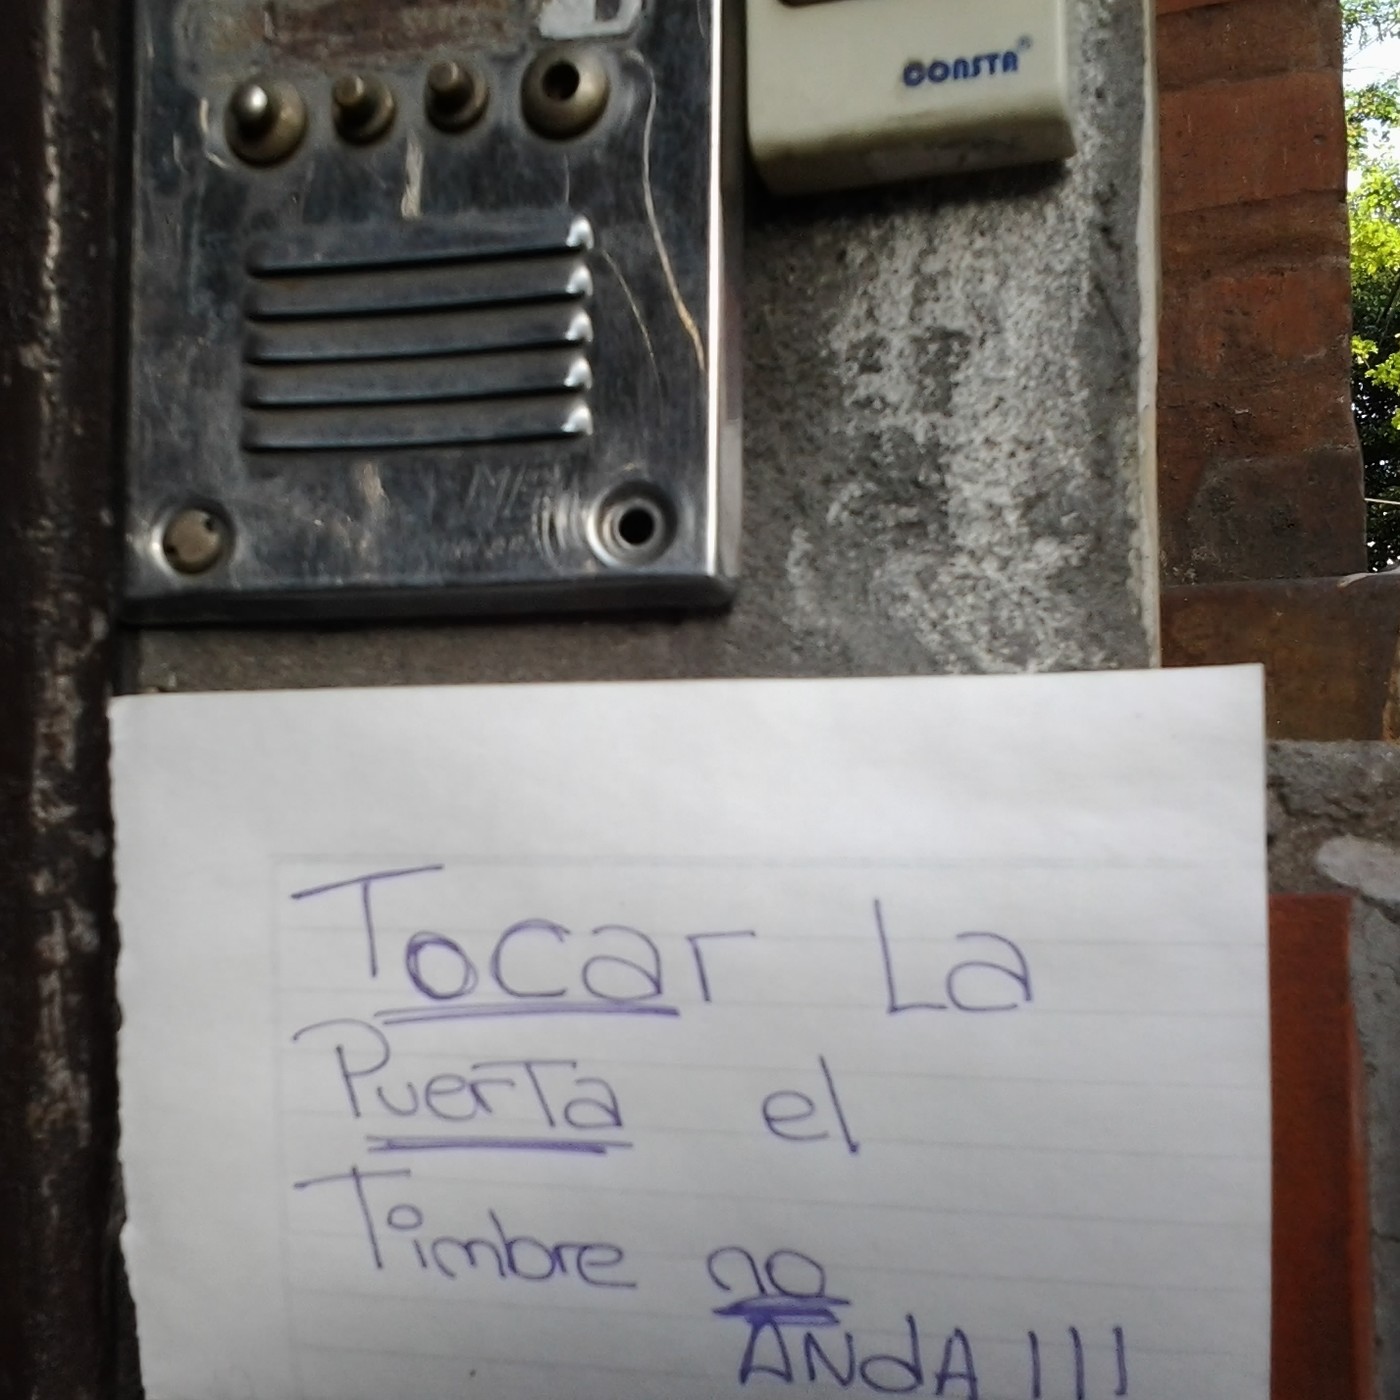 CONSTA
Tocar La
Puerta el
Timbre no
ANdA !!!